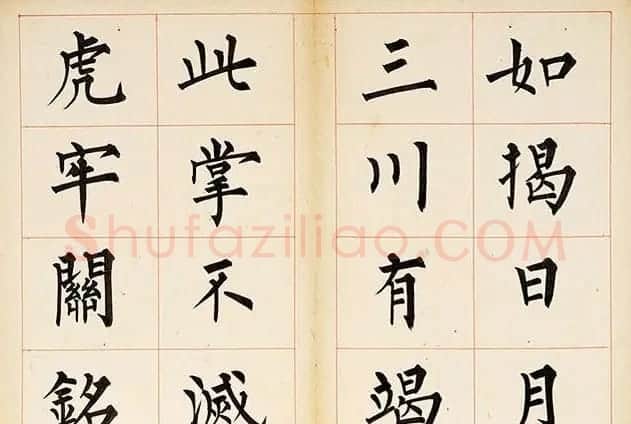 如揭日月
三川有竭
此掌不滅
虎牢關銘
Shufaziliao.COM